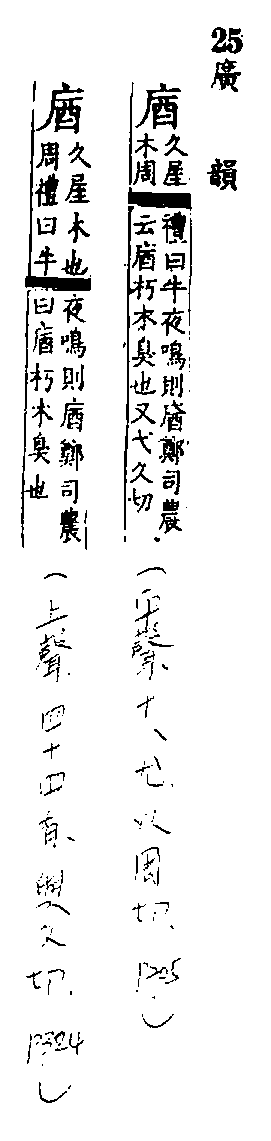 25
廣韻
庮
久屋
木周
禮曰牛夜鳴則庮鄭司農
云庮朽木臭也又弋久切
(平聲、十八尤、以周切、P205)
庮
久屋木也
周禮曰牛
夜鳴則庮鄭司農
曰庮朽木臭也
(上聲、四十四有、與久切、P324)